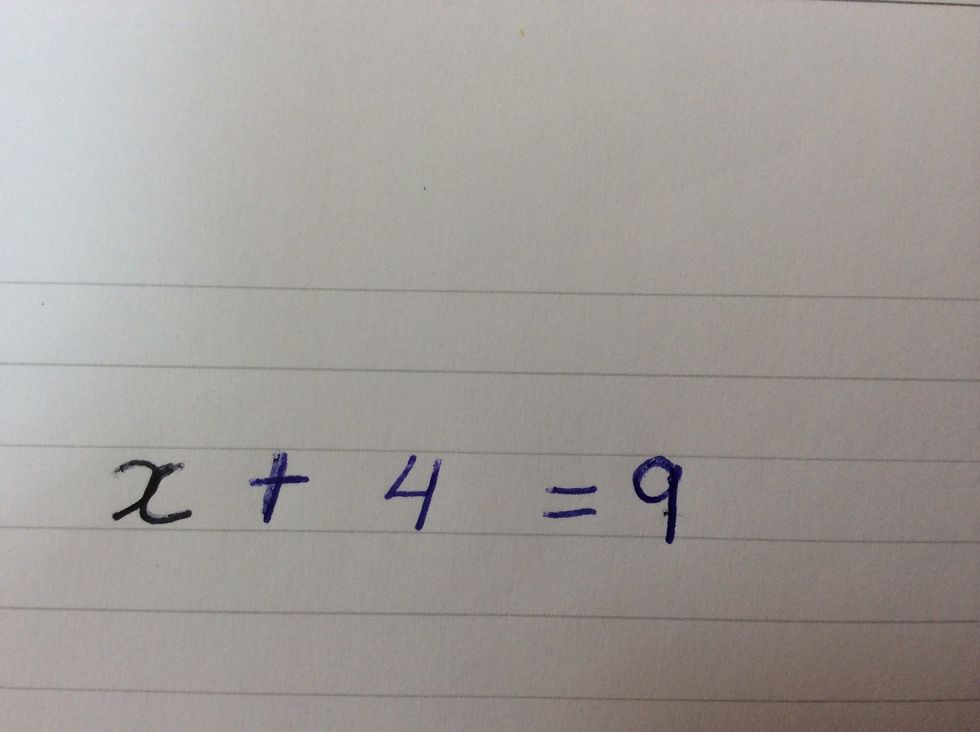 x + 4 = 9